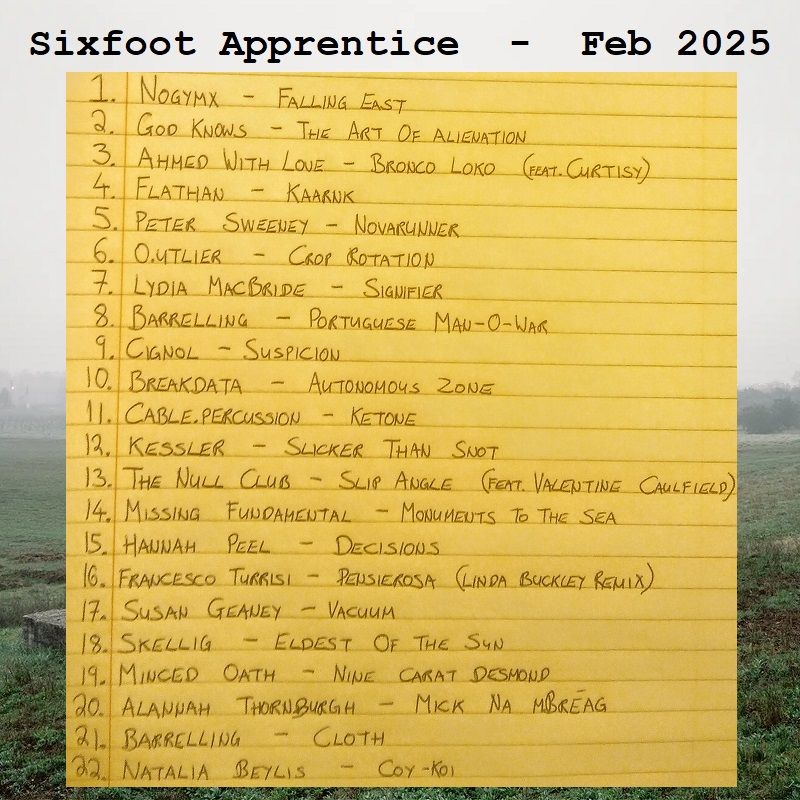 Sixfoot Apprentice - Feb 2025
1. NOGYMX - FALLING EAST
2. GOD KNOWS - THE ART OF ALIENATION
3. AHMED WITH LOVE - BRONCO LOKO (FEAT. CURTISY)
4. FLATHAN - KAARNK
5. PETER SWEENEY - NOVARUNNER
6. O.UTLIER - CROP ROTATION
7. LYDIA MACBRIDE - SIGNIFIER
8. BARRELLING - PORTUGUESE MAN-O-WAR
9. CIGNOL - SUSPICION
10. BREAKDATA - AUTONOMOUS ZONE
11. CABLE.PERCUSSION - KETONE
12. KESSLER - SLICKER THAN SNOT
13. THE NULL CLUB - SLIP ANGLE (FEAT. VALENTINE CAULFIELD)
14. MISSING FUNDAMENTAL - MONUMENTS TO THE SEA
15. HANNAH PEEL - DECISIONS
16. FRANCESCO TURRISI - PENSIEROSA (LINDA BUCKLEY REMIX)
17. SUSAN GEANEY - VACUUM
18. SKELLIG - ELDEST OF THE SUN
19. MINCED OATH - NINE CARAT DESMOND
20. ALANNAH THORNBURGH - MICK NA MBRÉAG
21. BARRELLING - CLOTH
22. NATALIA BEYLIS - COY-KOI